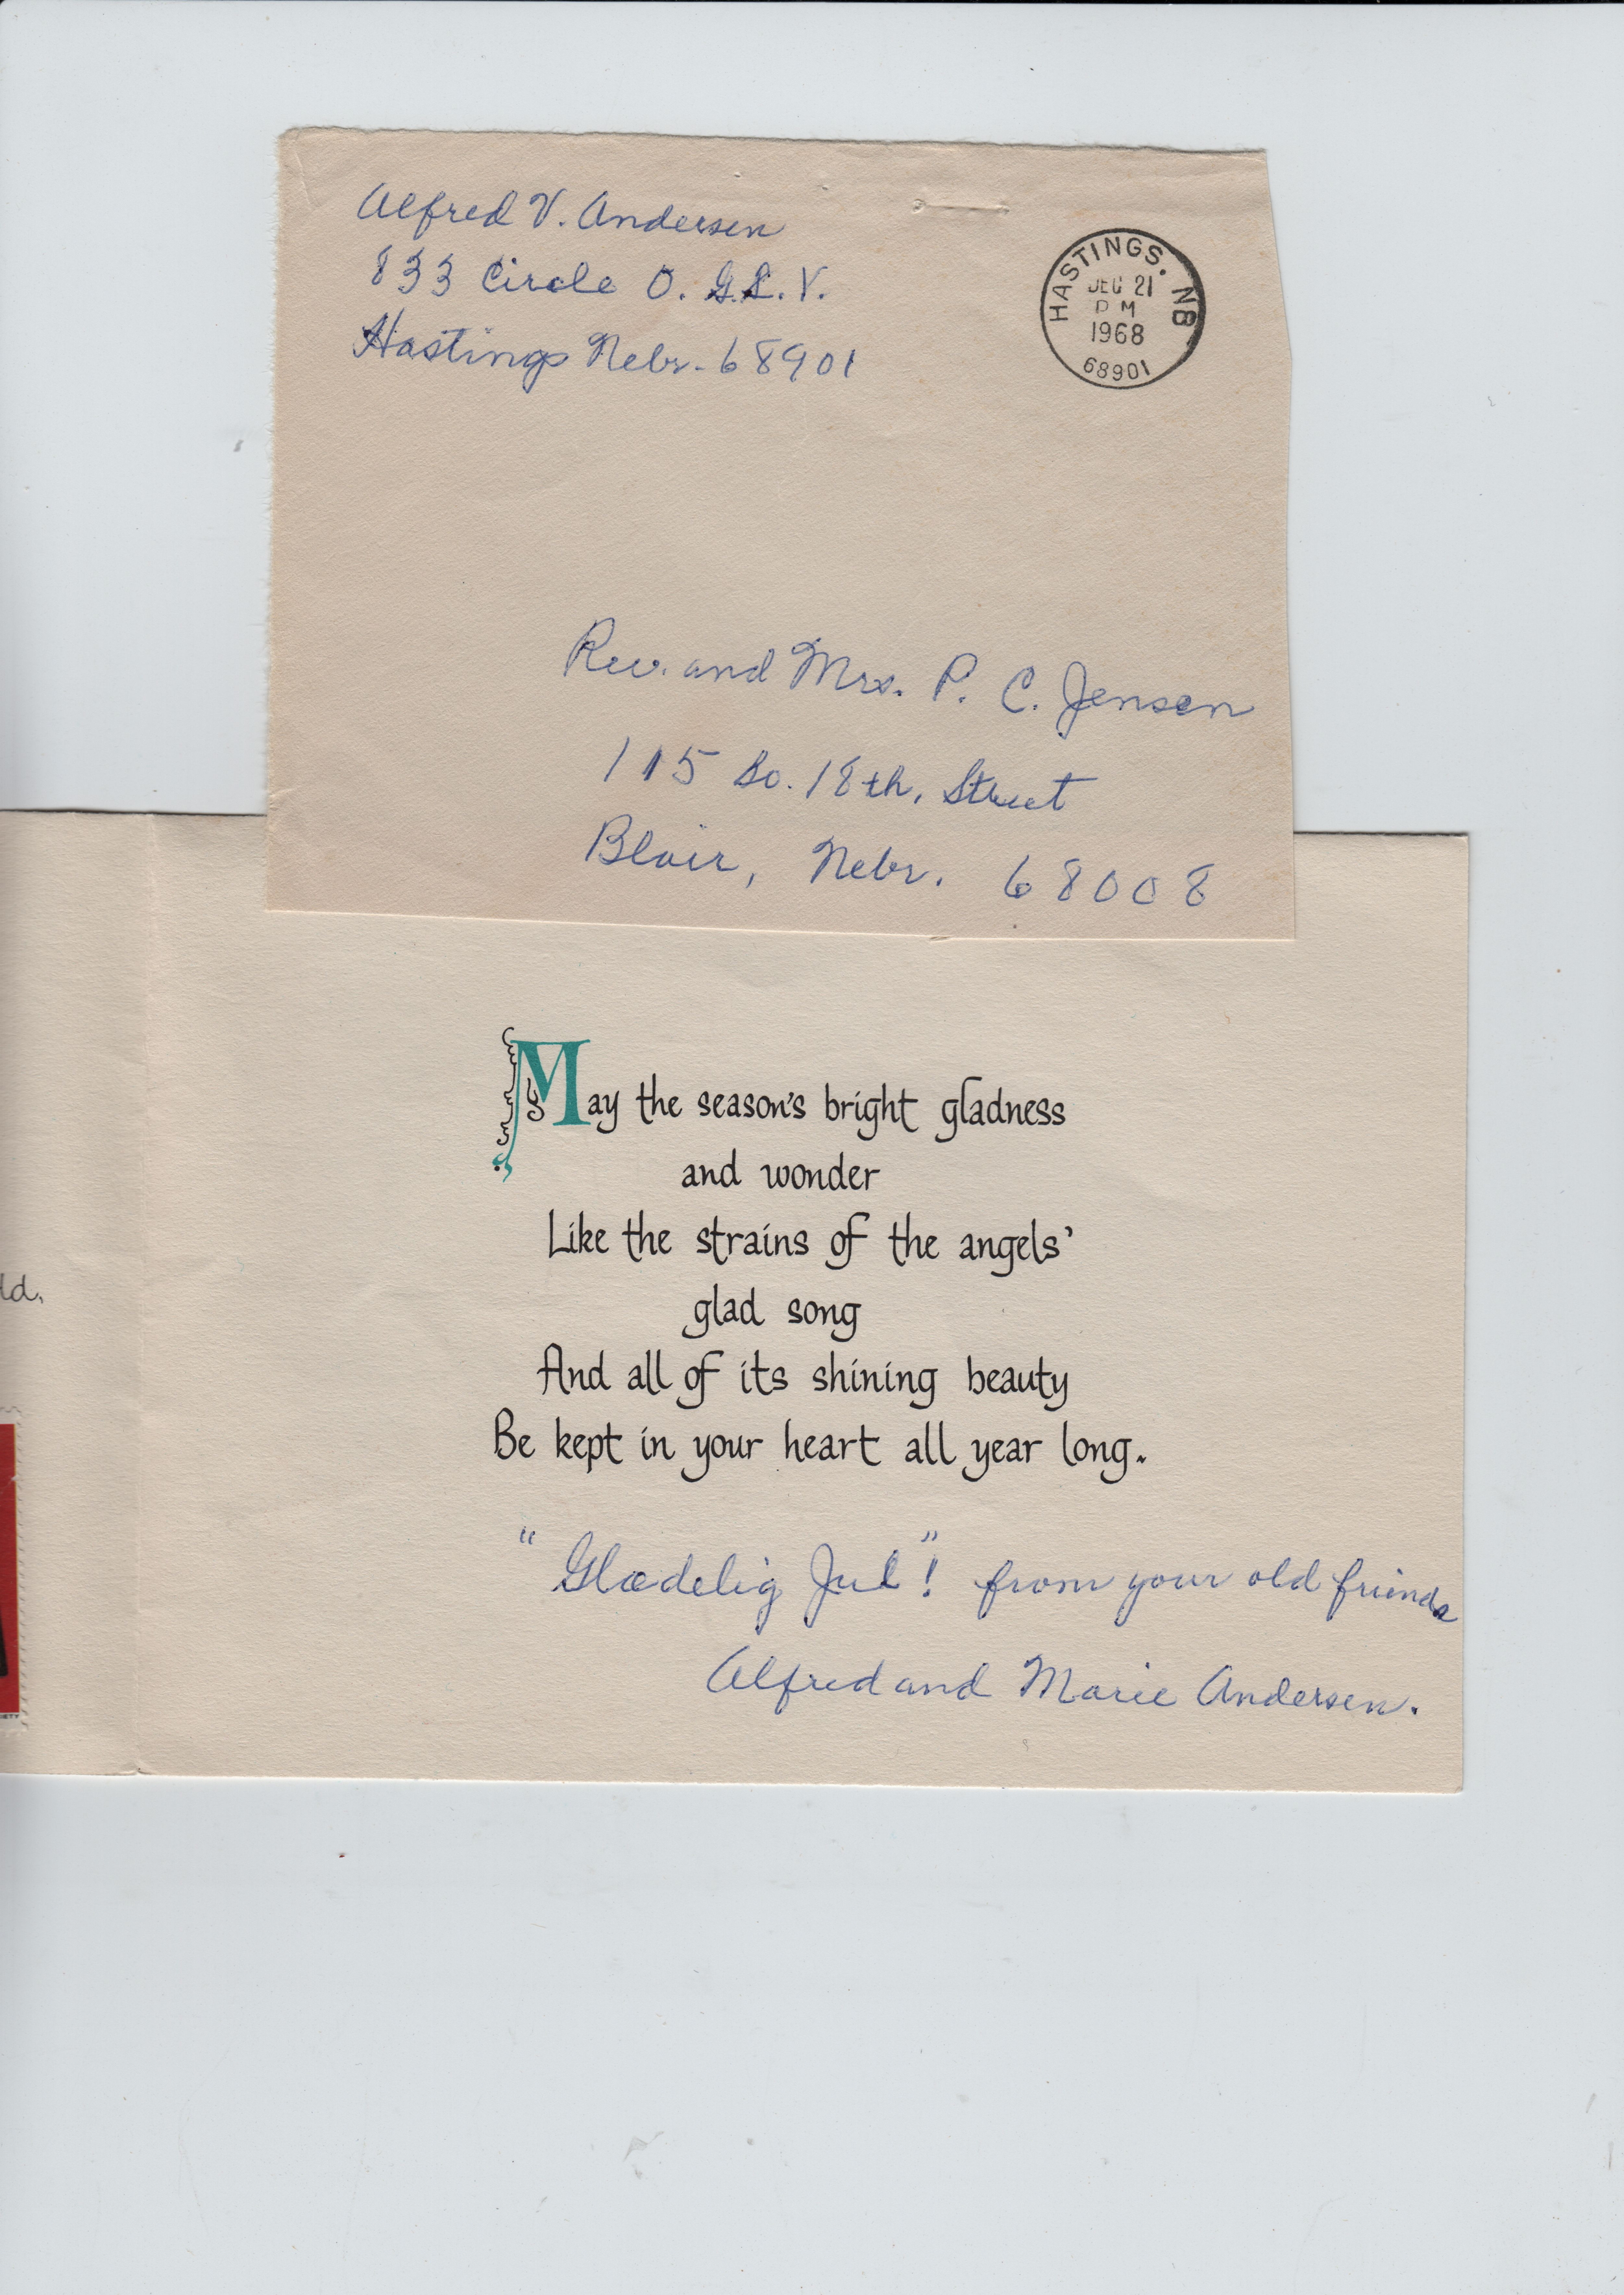 Alfred V. Andersen
833 Circle O. G.L.V.
Hastings Nebr. 68901
HASTINGS. NB
DEC 21
PM
1968
68901
Rev. and Mrs. P. C. Jensen
115 So. 18th, Street
Blair, Nebr. 68008
May the season's bright gladness
and wonder
Like the strains of the angels'
glad song
ld.
And all of its shining beauty
Be kept in your heart all year long.
"Glædelig Jul"! from your old friends
Alfred and Marie Andersen.
IETY